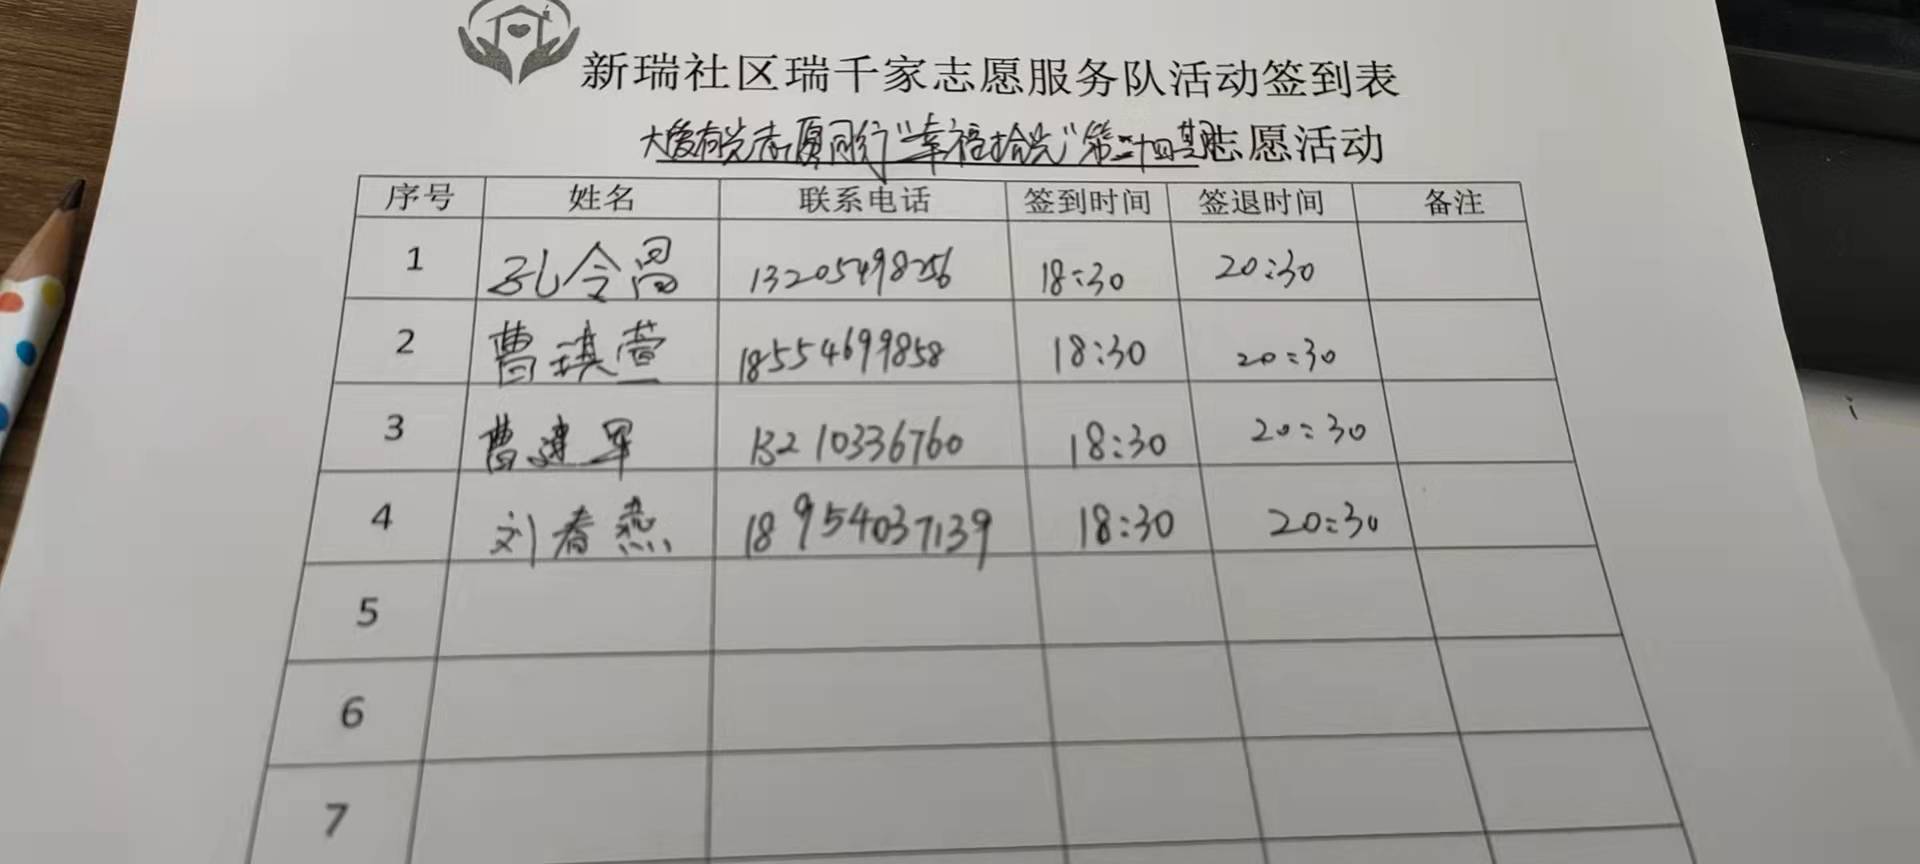 新瑞社区瑞千家志愿服务队活动签到表
大爱有光志愿同行“幸福拾光”第二十四期志愿活动
序号 姓名 联系电话 签到时间 签退时间 备注
1 孔令昌 13205498256 18:30 20:30
2 曹琪萱 18554699858 18:30 20:30
3 曹建军 13210336760 18:30 20:30
4 刘春燕 18954037139 18:30 20:30
5
6
7